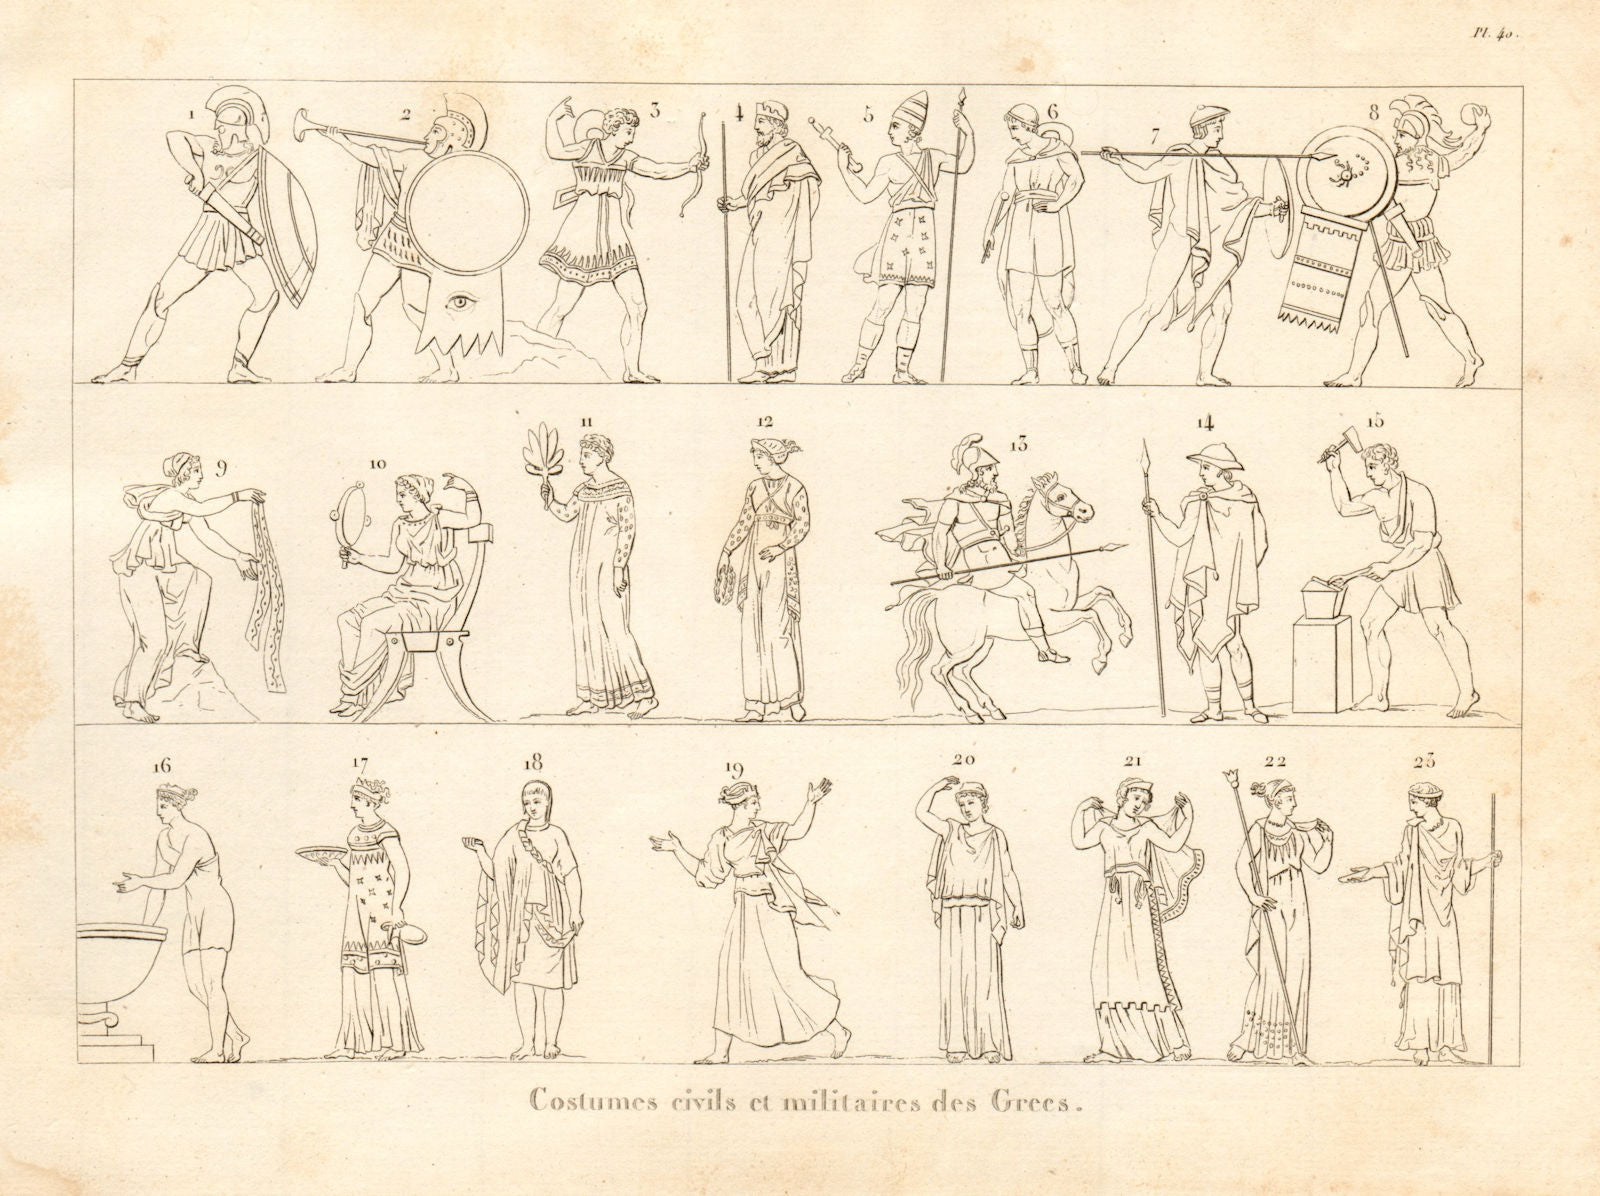 Pl. 40.
1 2 3 4 5 6 7 8
9 10 11 12 13 14 15
16 17 18 19 20 21 22 23
Costumes civils et militaires des Grecs.